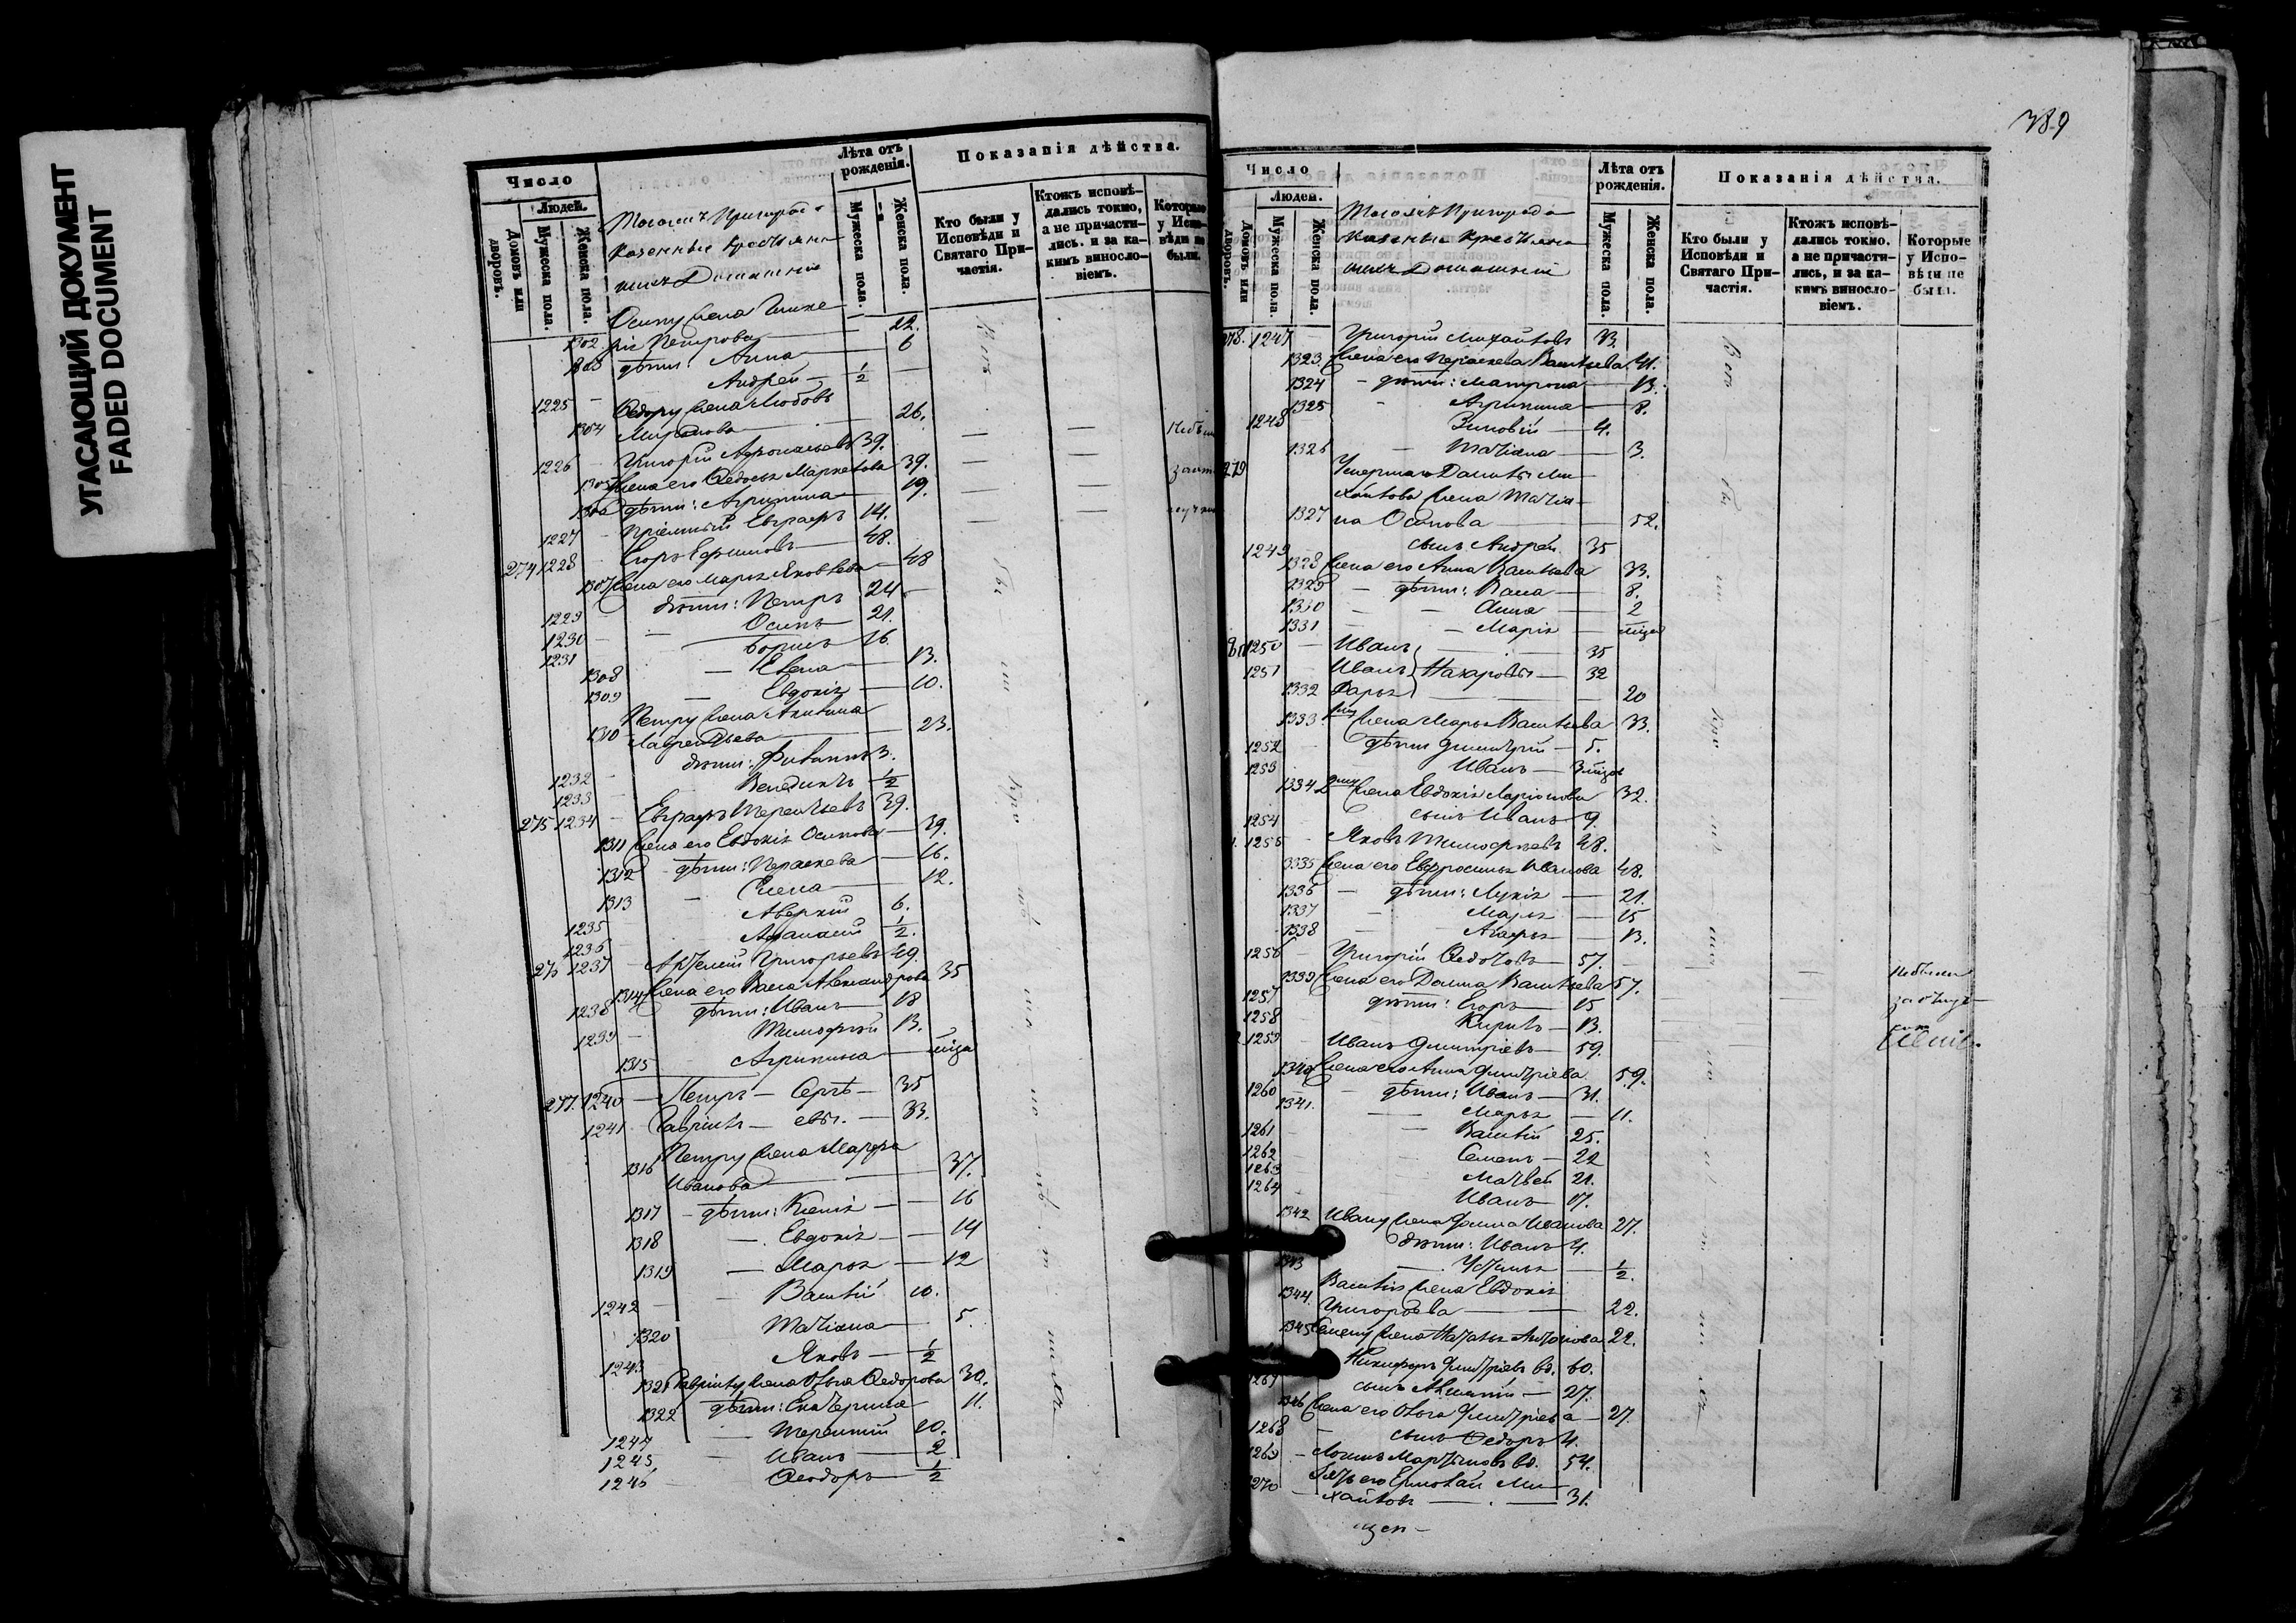 УГАСАЮЩИЙ ДОКУМЕНТ
FADED DOCUMENT
Число
Людей.
Домовъ или дворовъ.
Мужеска пола.
Женска пола.
Тогожъ Пригорода
казенные крестьяне
ихъ Домашніе
Лѣта отъ рожденія.
Мужеска пола.
Женска пола.
Показанія дѣйства.
Кто были у Исповѣди и Святаго Причастія.
Ктожъ исповѣдались токмо, а не причастились. и за какимъ винословіемъ.
Которые у Исповѣди не были.
Осипу жена
1302. Петрова 22.
1303 дѣти: Анна 6
1225 Андрей 1/2
Ѳедору жена Любовь
1304 Миронова 26.
1226 Григорій Афонасьевъ 39.
1305 Жена его Ѳедосья Маркелова 39.
1306 дѣти: Агрипина 19.
1227 Пріемышъ Евграфъ 14.
274 1228 Егоръ Ефимовъ 48.
1307 Жена его Марья Яковлева 48
1229 дѣти: Петръ 24
1230 Осипъ 21.
1231 Борисъ 16.
1308 Елена 13.
1309 Евдокія 10.
Петру жена Акилина
1310 Лаврентьева 23.
1232 дѣти: 3.
1233 Венедиктъ 1/2
275 1234 Евграфъ Терентьевъ 39.
1311 Жена его Евдокія Осипова 39.
1312 дѣти: Параскева 16.
1313 Елена 12.
1235 Аверкій 6.
1236 Афанасій 1/2.
276 1237 Артемій Григорьевъ 49.
1314 Жена его Васса Александрова 35
1238 дѣти: Иванъ 18
1239 Тимофѣй 13.
1315 Агрипина
277. 1240 Петръ — Сергѣ — 35
1241 Гаврилъ — евы. — 33.
Петру жена Марфа
1316 Иванова 37.
1317 дѣти: Ксенія 16
1318 Евдокія 14
1319 Марья 12
1242 Василій 10.
1320 Татіана 5.
1243 Яковъ 1/2
1321 Гаврилу жена Ольга Ѳедорова 30.
1322 дѣти: Екатерина 11.
1244 Терентій 10.
1245 Иванъ 2
1246 Ѳеодоръ 1/2
389
Число
Людей.
Домовъ или дворовъ.
Мужеска пола.
Женска пола.
Тогожъ Пригорода
казенные крестьяне
ихъ Домашніе
Лѣта отъ рожденія.
Мужеска пола.
Женска пола.
Показанія дѣйства.
Кто были у Исповѣди и Святаго Причастія.
Ктожъ исповѣдались токмо. а не причастились, и за какимъ винословіемъ.
Которые у Исповѣди не были.
278. 1247 Григорій Михайловъ 33.
1323. Жена его Параскева Васильева 41.
1324 дѣти: Матрона 13.
1325 Агрипина 8.
1248 Зиновій 4.
1326 Татіана 3.
279 Умершаго Данилы Ми
хайлова жена Татіа
1327 на Осипова 52.
1249 сынъ Андрей 35
1328 Жена его Анна Васильева 33.
1329 дѣти: Васса 8.
1330 Анна 2
1331 Марія
1250 Иванъ 35
1251 Иванъ Назаровы 32
1332 Дарья 20
1333 Жена Марья Васильева 33.
1252 дѣти Дмитрій 5.
1253 Иванъ 3
1334 Жена Евдокія Ларіонова 32.
1254 сынъ Иванъ 9.
1255 Яковъ Тимофѣевъ 48.
1335 Жена его Евфросинья Иванова 48.
1336 дѣти: Лукія 21.
1337 Марья 15
1338 Агафья 13.
1256 Григорій Ѳедотовъ 57.
1339 Жена его Домна Васильева 57.
1257 дѣти: Егоръ 15
1258 Кирилъ 13.
1259 Иванъ Дмитріевъ 59.
1340 Жена его Анна Дмитріева 59.
1260 дѣти: Иванъ 31.
1341. Марья 11.
1261 Василій 25.
1262 Семенъ 22
1263 Матвей 21.
1264 Иванъ 17.
1342 Ивану жена Домна Иванова 27.
дѣти: Иванъ 4.
1343 Устинья 1/2.
Василію жена Евдокія
1344. Григорьева 22.
1345 Семену жена Наталья Антонова 22.
Никифоръ Дмитріевъ вд. 60.
1267 сынъ 27.
1346 Жена его Ольга Дмитріева 27.
1268 сынъ Ѳедоръ 4.
1269 Логинъ Мартыновъ вд. 54.
Зять его Ермолай Ми
1270 хайловъ 31.